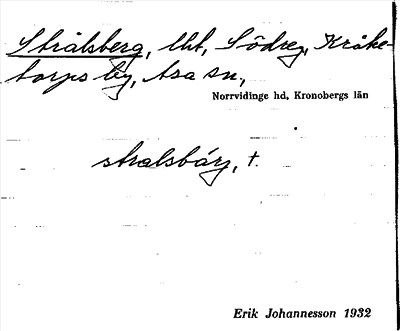 Strålsberg, lht, Södreg, Kråke-
torps by, Asa sn,
Norrvidinge hd, Kronobergs län
stralsbárg, t.
Erik Johannesson 1932